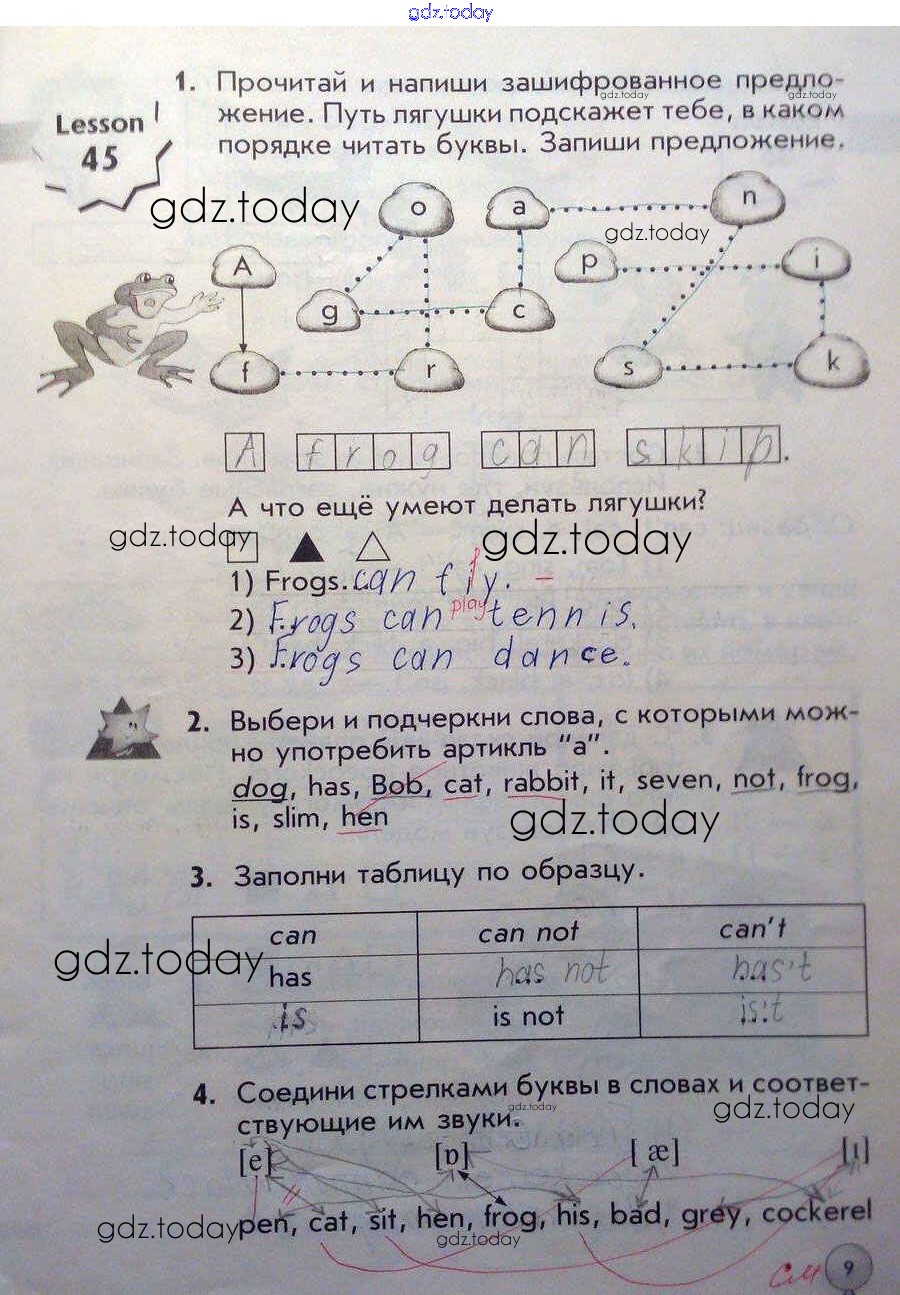 gdz.today
1. Прочитай и напиши зашифрованное предло-
gdz.today gdz.today
жение. Путь лягушки подскажет тебе, в каком
Lesson
45
порядке читать буквы. Запиши предложение.
gdz.today
o a n
gdz.today
A p i
g c
f r s k
A frog can skip.
А что ещё умеют делать лягушки?
gdz.today gdz.today
1) Frogs...can fly. –
2) Frogs can play tennis.
3) Frogs can dance.
2. Выбери и подчеркни слова, с которыми мож-
но употребить артикль "a".
dog, has, Bob, cat, rabbit, it, seven, not, frog,
is, slim, hen
gdz.today
3. Заполни таблицу по образцу.
can can not can't
gdz.today
has has not has't
is is not is:t
4. Соедини стрелками буквы в словах и соответ-
gdz.today gdz.today
ствующие им звуки.
[e] [ɒ] [æ] [ɪ]
pen, cat, sit, hen, frog, his, bad, grey, cockerel
gdz.today gdz.today
См 9